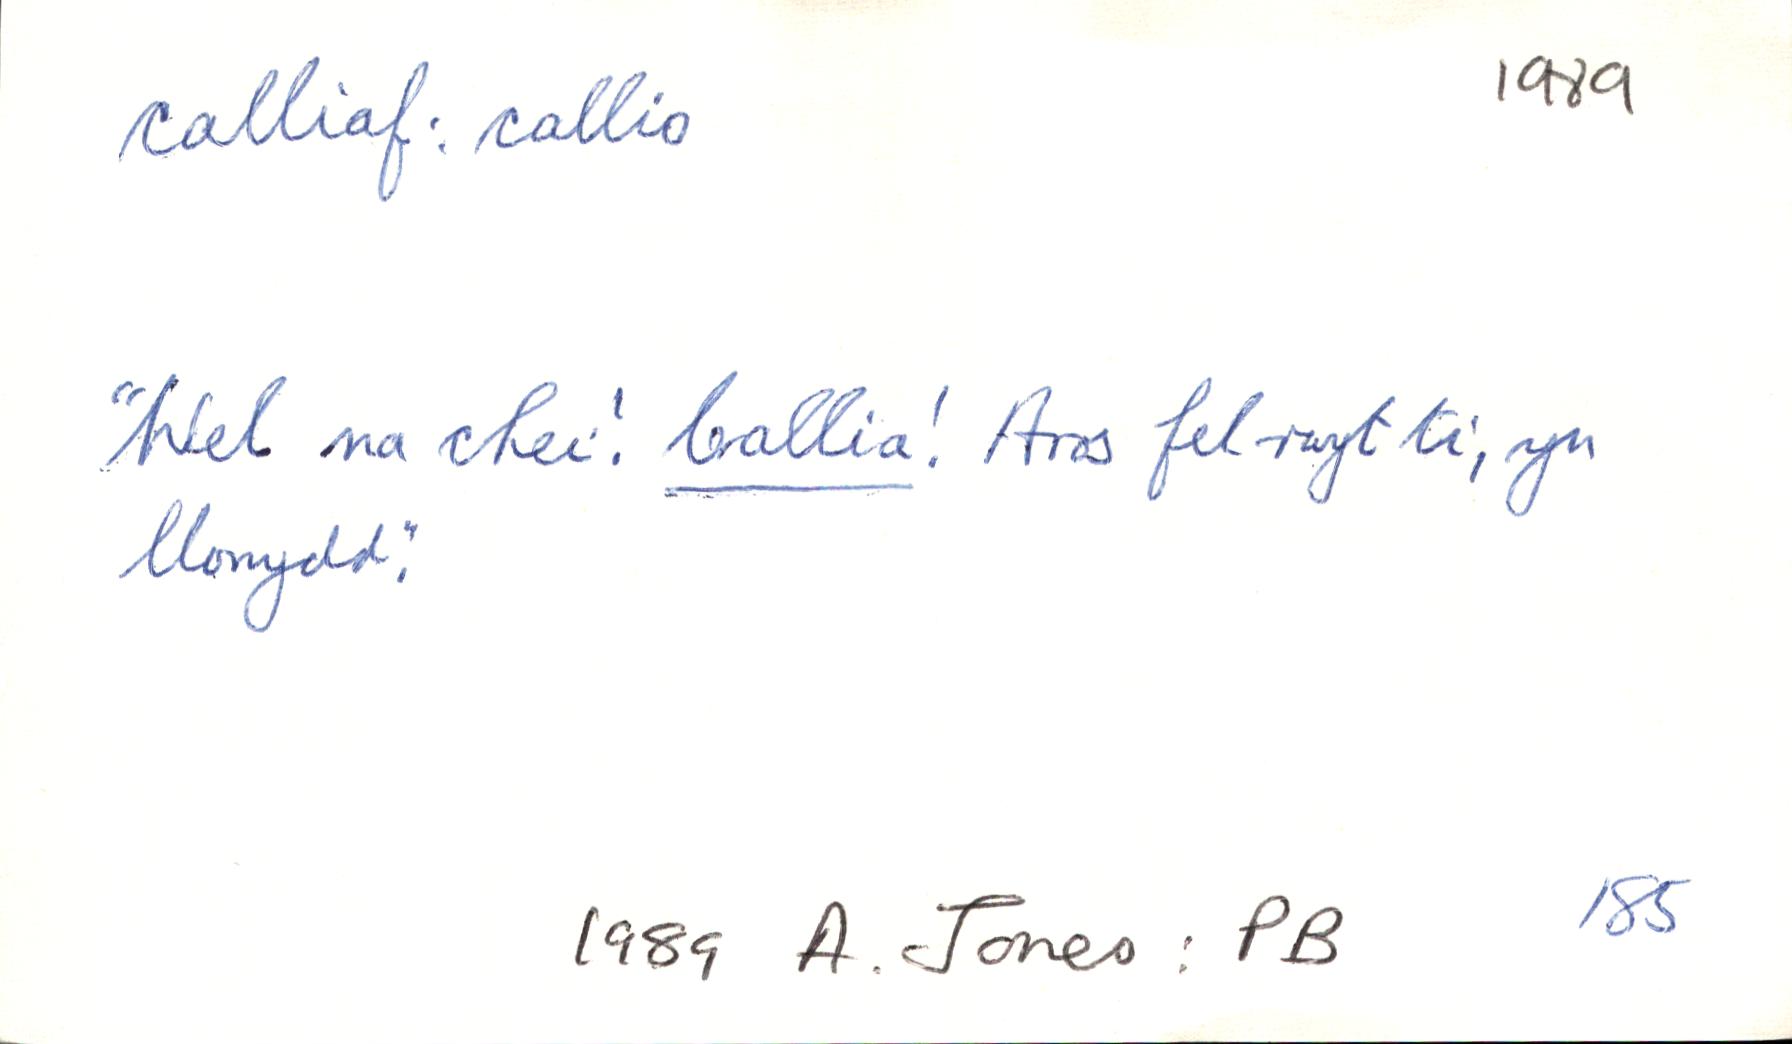 calliaf: callio
1989
"Wel na chei! Callia! Aros fel rwyt ti, yn
llonydd".
1989 A. Jones: PB
185